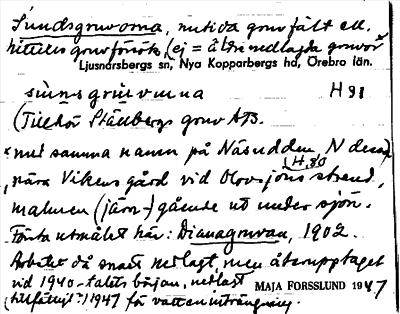 Sundsgruvorna, nutida gruvfält ell.
hittills gruvförsök (ej = äldre nedlagda gruvor
Ljusnarsbergs sn, Nya Kopparbergs hd, Örebro län.
H 81
(Tillhör Ställbergs gruv AB.
med samma namn på Näsudden, N desa
(H.80
nära Vikens gård vid Olovsjöns strand,
malmen (järn-) gående ut under sjön.
Första utmålet här: Dianagruvan, 1902.
Arbetet då snart nedlagt, men återupptaget
vid 1940-talets början, nedlagt MAJA FORSSLUND 1947
(tillfälligt?) 1947 för vatteninträngning.